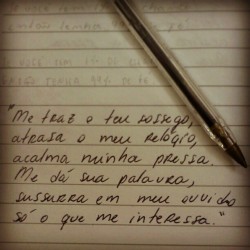 "Me traz o teu sossego,
atrasa o meu relógio,
acalma minha pressa.
Me dá sua palavra,
sussurra em meu ouvido
só o que me interessa."